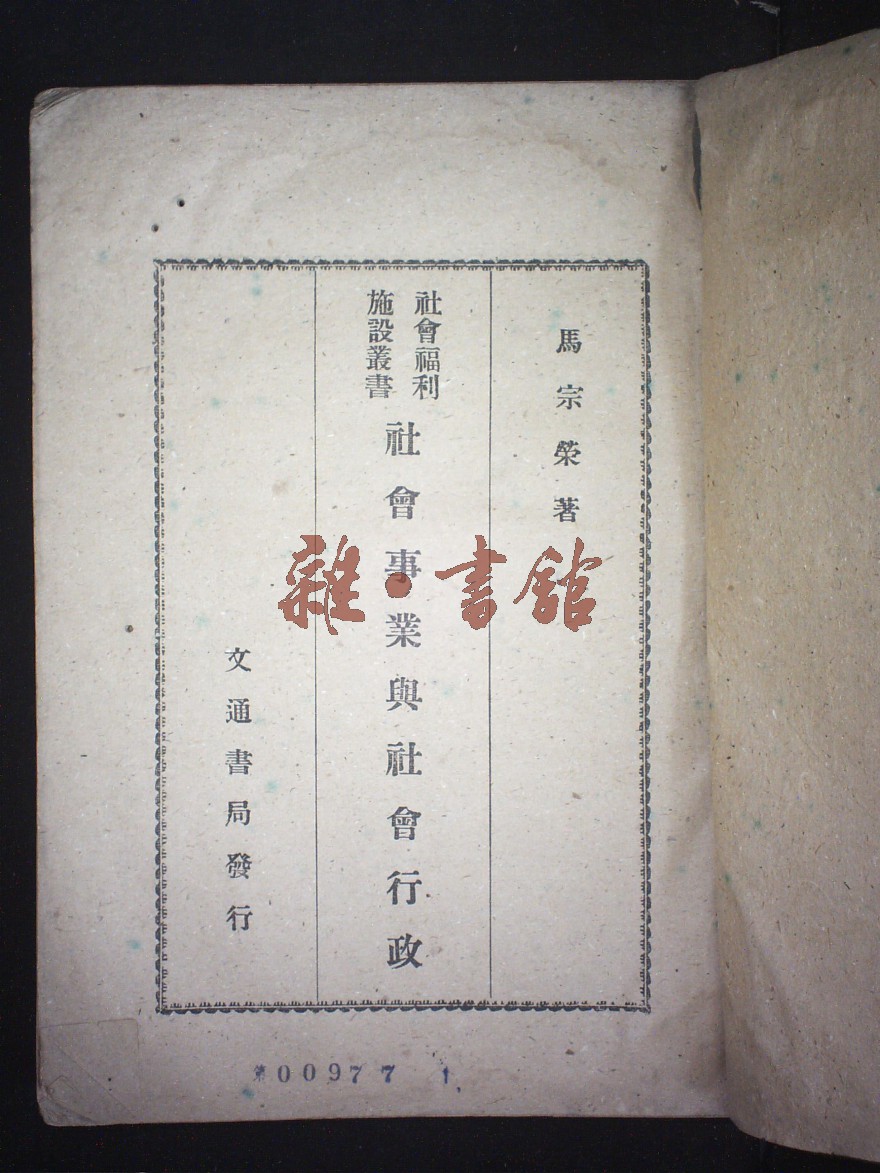 馬宗榮著
社會福利
施設叢書
社會事業與社會行政
文通書局發行
雜·書館
第00977 1